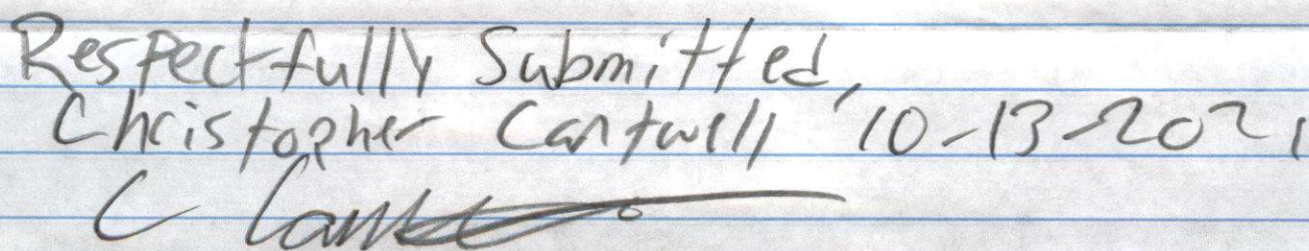 Respectfully Submitted,
Christopher Cantwell 10-13-2021